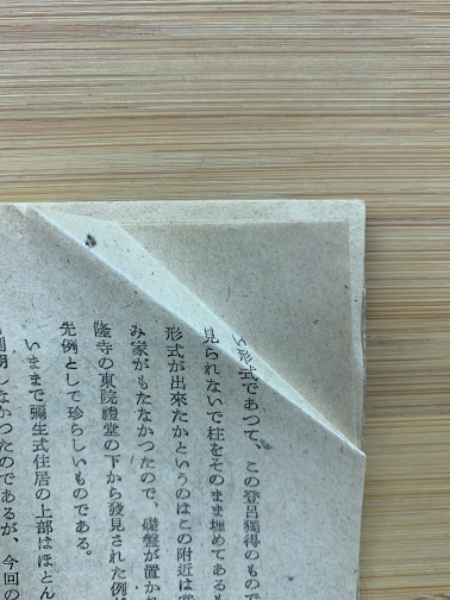 い形式であつて、この登呂獨得のもので
見られないで柱をそのまま埋めてあるも
形式が出來たかというのはこの附近は
み家がもたなかつたので、礎盤が置かれ
隆寺の東院禮堂の下から發見された例が
先例として珍らしいものである。
いままで彌生式住居の上部はほとん
判明しなかつたのであるが、今回の